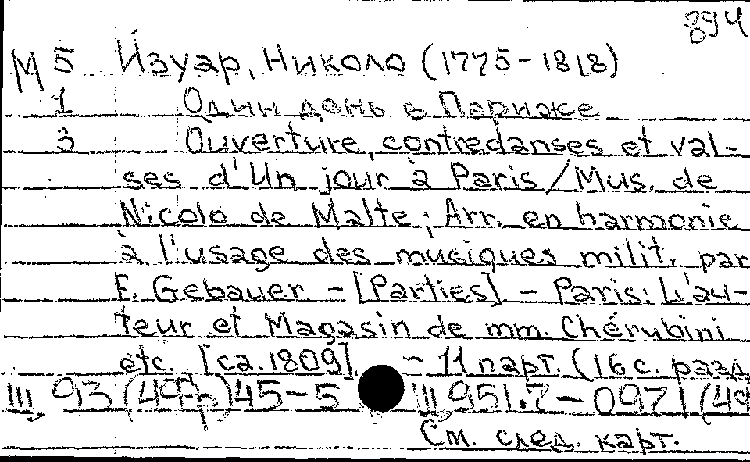 894
М 5 Изуар, Николо (1775-1818)
1 Один день в Париже
3 Ouverture, contredanses et val-
ses d'Un jour à Paris/Mus. de
Nicolo de Malte; Arr. en harmonie
à l'usage des musiques milit. par
F. Gebauer - [Parties] - Paris: L'au-
teur et Magasin de mm. Chérubini
etc. [ca. 1809]. - 11 парт. (16 с. разд.
Ш 93 (49Фр)45-5 Ш 951.7-0971 (49
См. след. карт.